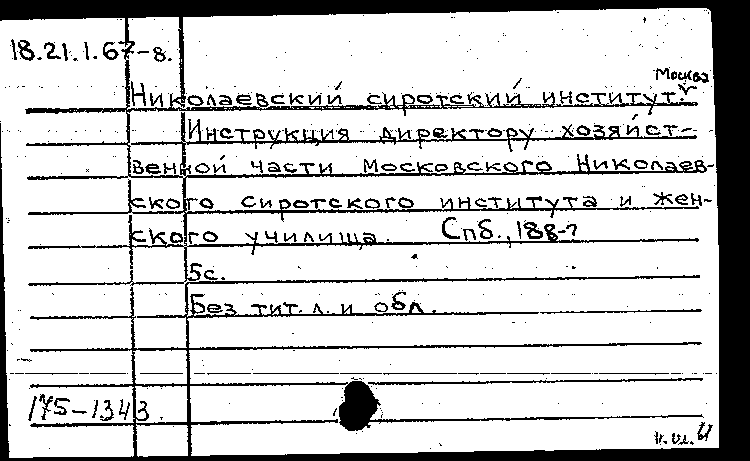 18.21.1.67-8.
Москва
Николаевский сиротский институт.
Инструкция директору хозяйст-
венной части Московского Николаев-
ского сиротского института и жен-
ского училища. Спб., 188-?
5с.
Без тит. л. и обл.
175-1343.